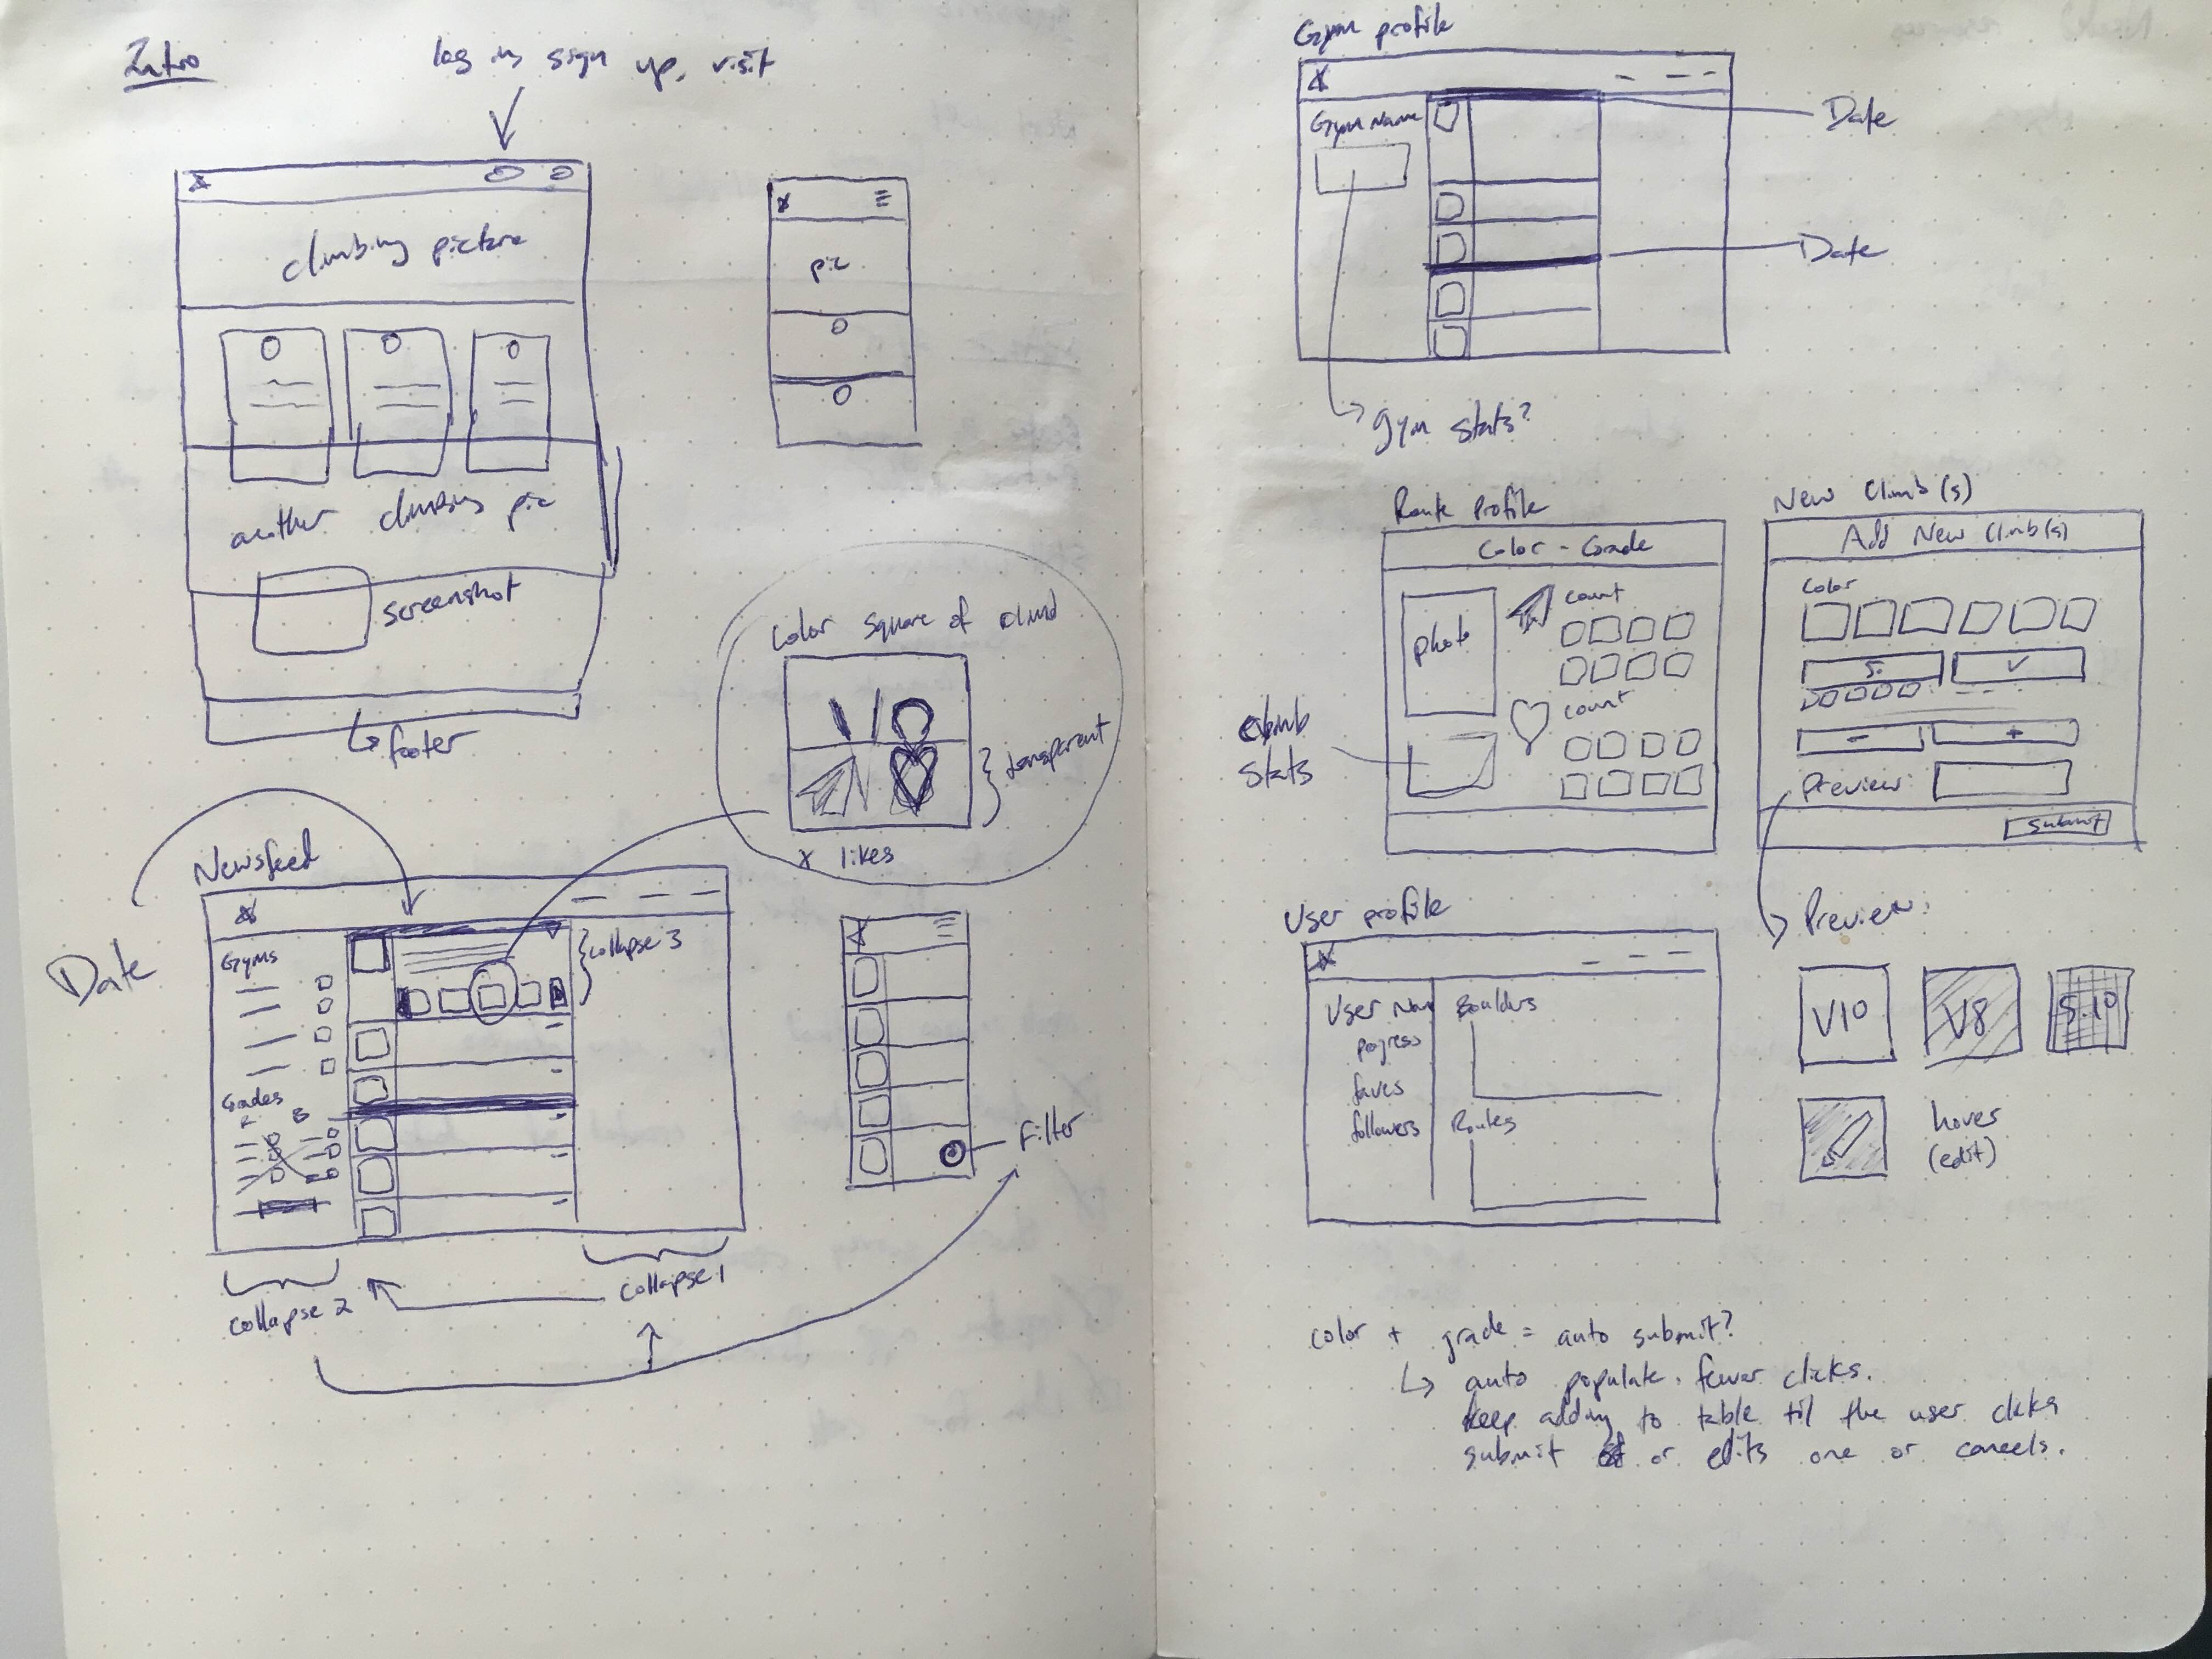 Intro
log in, sign up, visit
climbing picture
another climbing pic
screenshot
footer
pic
Color square of climb
transparent
x likes
Newsfeed
Date
Gyms
Grades
R B
collapse 3
collapse 2
collapse 1
Filter
Gym profile
Gym Name
Date
Date
gym stats?
Route Profile
Color - Grade
photo
count
count
climb
stats
New Climb(s)
Add New Climb(s)
Color
5. V
- +
Preview:
submit
User profile
User Name
progress
faves
followers
Boulders
Routes
Preview:
V10 V8 5.10
hover
(edit)
color + grade = auto submit?
auto populate. fewer clicks.
keep adding to table til the user clicks
submit or edits one or cancels.